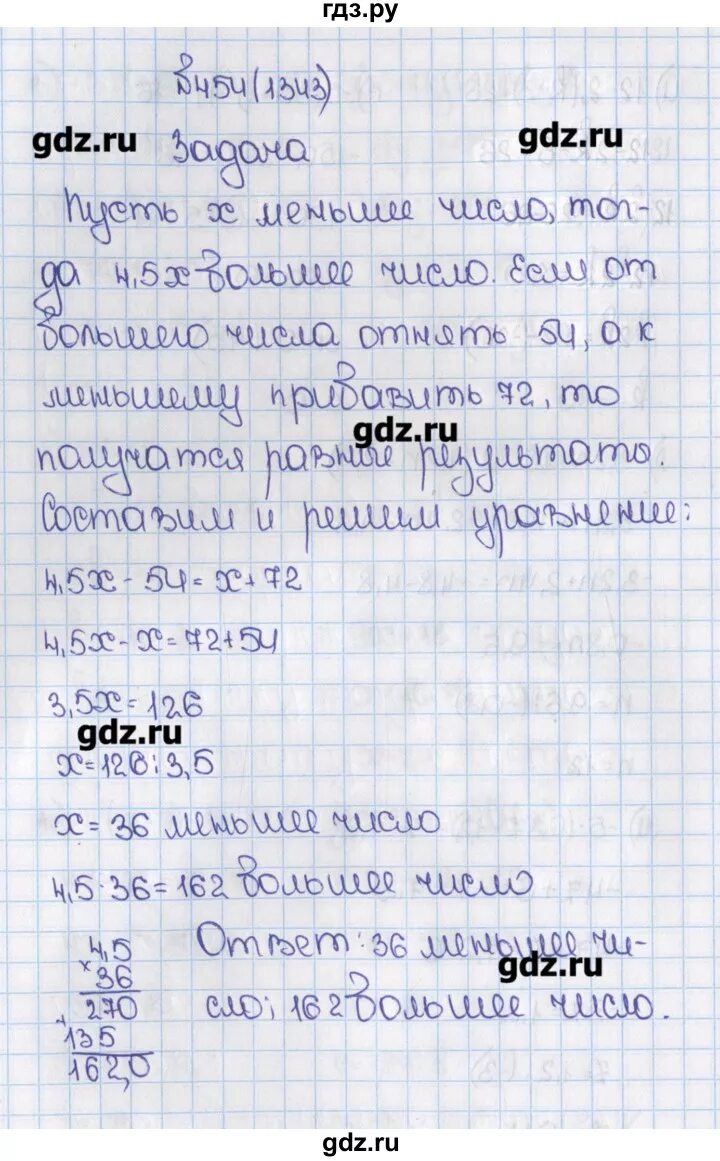 гдз.ру
№454(1343)
gdz.ru
gdz.ru
Задача
Пусть х меньшее число, тог-
да 4,5х большее число. Если от
большего числа отнять 54, а к
меньшему прибавить 72, то
gdz.ru
получатся равные результаты.
Составим и решим уравнение:
4,5х - 54 = х + 72
4,5х - х = 72 + 54
3,5х = 126
gdz.ru
х = 126 : 3,5
х = 36 меньшее число
4,5 · 36 = 162 большее число
4,5
× 36
270
+
135
162,0
Ответ: 36 меньшее чи-
gdz.ru
сло; 162 большее число.
gdz.ru